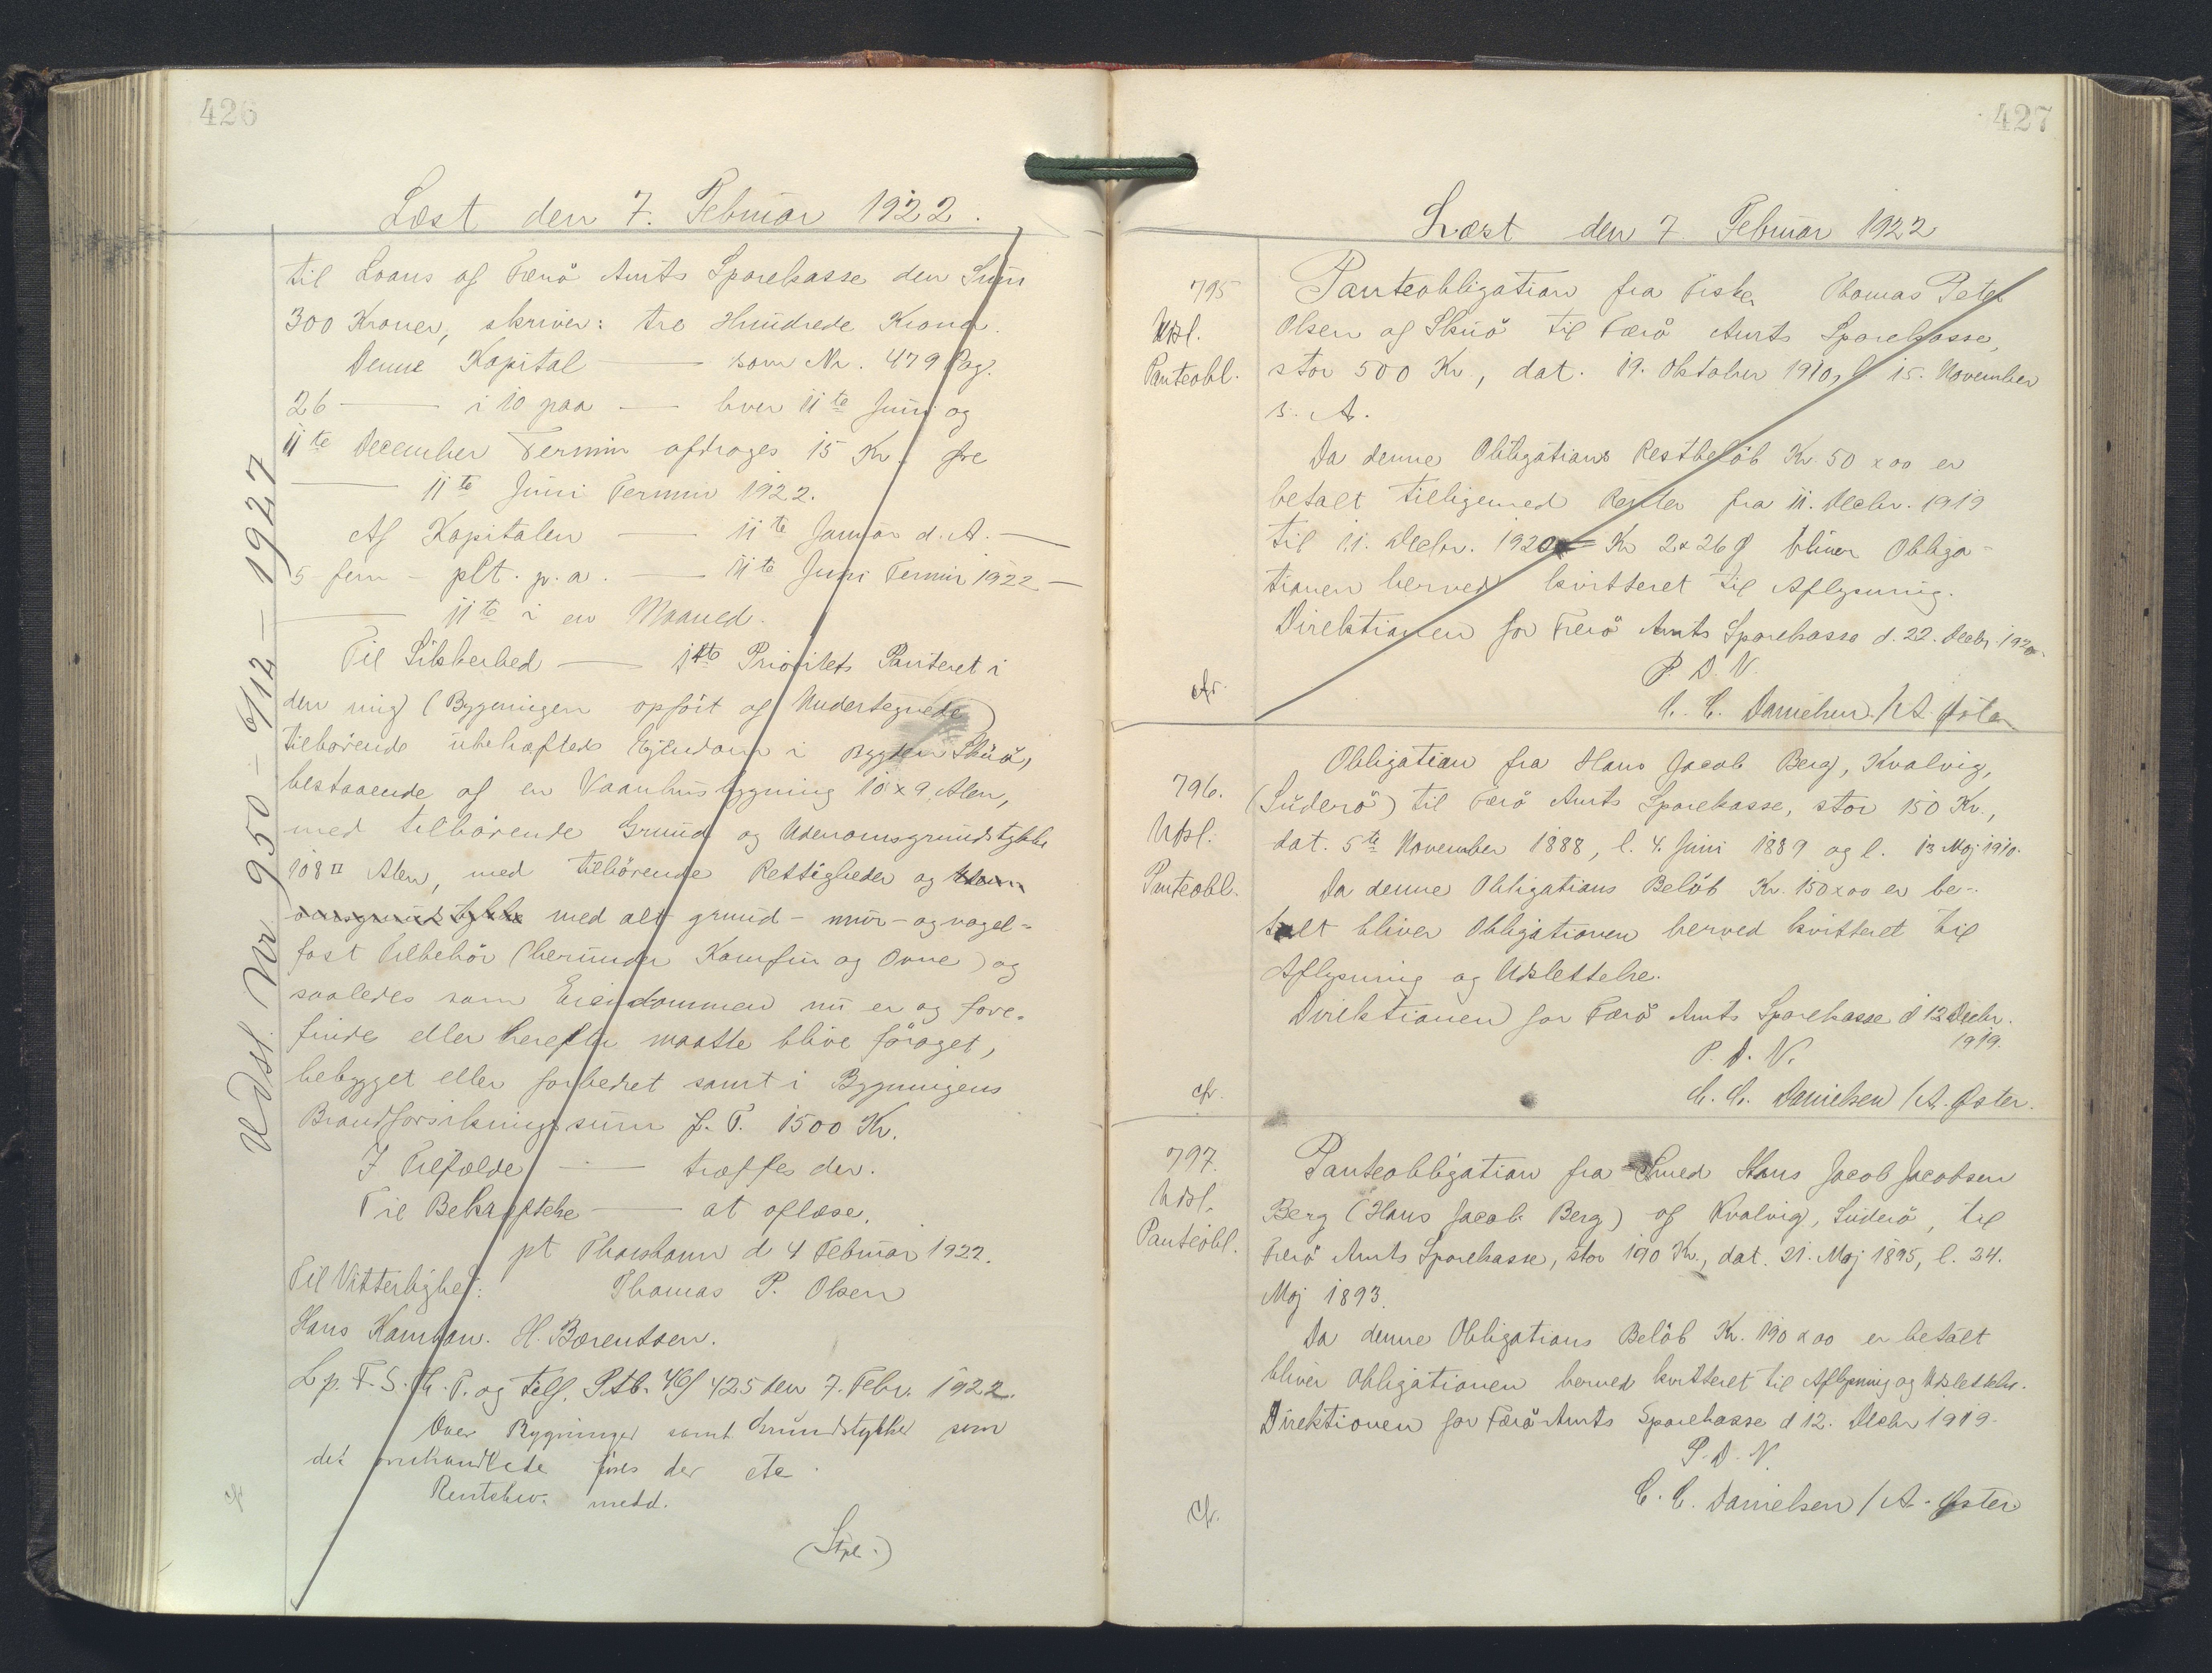 426
Læst den 7. Februar 1922.
til Loans af Færö Amts Sparekasse den Sum
300 Kroner, skriver: tre Hundrede Kroner.
Denne Kapital — som Nr. 479 Pag.
26 — i 10 paa — hver 11te Juni og
11te December Termin afdrages 15 Kr.
— 11te Juni Termin 1922.
Af Kapitalen — 11te Januar d. A. —
5 fem - pCt. p. a. — 11te Juni Termin 1922 —
— 11te i en Maaned.
Til Sikkerhed — 1ste Prioritets Panteret i
den mig (Bygningen opfört af Undertegnede)
tilhörende ubehæftede Ejendom i Bygden Skuö,
bestaaende af en Vaanhusbygning 10 x 9 Alen,
med tilhörende Grund og Udenomsgrundstykke
108 □ Alen, med tilhörende Rettigheder og Uden
omsgrundstykke med alt grund- mur- og nagel-
fast Tilbehör (herunder Komfur og Ovne) og
saaledes som Eiendommen nu er og fore-
findes eller herefter maatte blive foröget,
bebygget eller forbedret samt i Bygningens
Brandforsikringssum f. T. 1500 Kr.
I Tilfælde — træffes der.
Til Bekræftelse — at aflæse.
pt Thorshavn d 4 Februar 1922.
Til Vitterlighed: Thomas P. Olsen
Hans Kamban. H. Bærentsen.
L p. F. S. Th. T. og tilf. Ptb. 425 den 7. Febr. 1922.
Over Bygninger samt Grundstykker som
det omhandlede föres der
medd.
(Stpl.)
cfr
Udsl. Nr. 950 - 6/12 - 1927
427
Læst den 7. Februar 1922
795
Udsl.
Panteobl.
Panteobligation fra Fisker Thomas Peter
Olsen af Skuö til Færö Amts Sparekasse,
stor 500 Kr., dat. 19. Oktober 1910, l. 15. November
s. A.
Da denne Obligations Restbelöb Kr. 50 x 00 er
betalt tilligemed Renter fra 11. Decbr. 1919
til 11. Decbr. 1920 Kr 2 x 26 bliver Obliga-
tionen herved kvitteret til Aflysning.
Direktionen for Færö Amts Sparekasse d. 22. Decbr. 1920.
P. D. V.
C. C. Danielsen / A. Öster
cfr.
796.
Udsl.
Panteobl.
Obligation fra Hans Jacob Berg, Kvalvig,
(Suderö) til Færö Amts Sparekasse, stor 150 Kr.,
dat. 5te November 1888, l. 4. Juni 1889 og l. 13 Maj 1910.
Da denne Obligations Belöb Kr. 150 x 00 er be-
talt bliver Obligationen herved kvitteret til
Aflysning og Udslettelse.
Direktionen for Færö Amts Sparekasse d 12 Decbr.
1919.
P. D. V.
C. C. Danielsen / A. Öster.
cfr.
797.
Udsl.
Panteobl.
Panteobligation fra Smed Hans Jacob Jacobsen
Berg (Hans Jacob Berg) af Kvalvig, Suderö, til
Færö Amts Sparekasse, stor 190 Kr., dat. 21. Maj 1895, l. 24.
Maj 1893.
Da denne Obligations Belöb Kr. 190 x 00 er betalt
bliver Obligationen herved kvitteret til Aflysning og Udslettelse.
Direktionen for Færö Amts Sparekasse d 12. Decbr 1919.
P. D. V.
C. C. Danielsen / A. Öster
cfr.